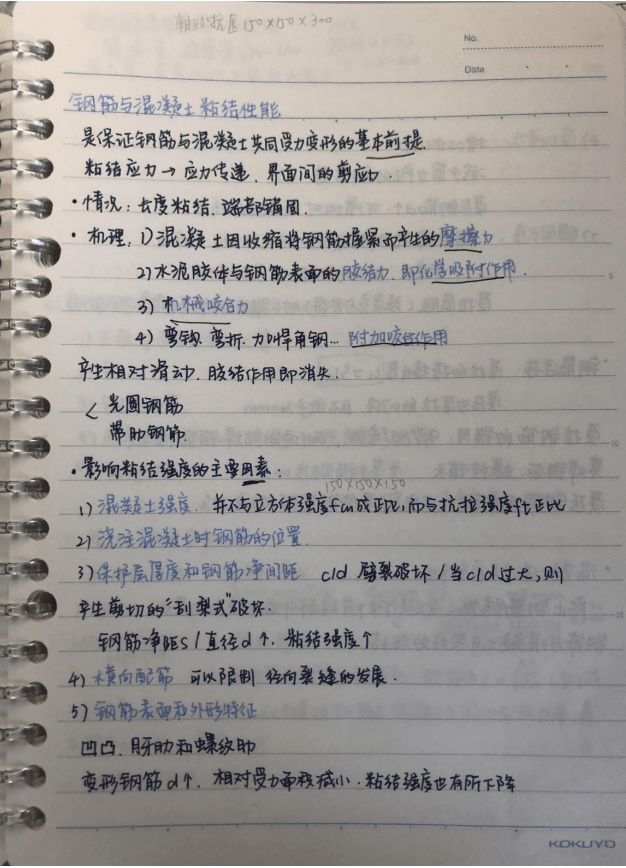 轴心抗压150×150×300
No.
Date
钢筋与混凝土粘结性能
是保证钢筋与混凝土共同受力变形的基本前提.
粘结应力→应力传递.界面间的剪应力.
·情况:长度粘结.端部锚固.
·机理.1)混凝土因收缩将钢筋握紧而产生的摩擦力
2)水泥胶体与钢筋表面的胶结力.即化学吸附作用.
3)机械咬合力
4)弯钩.弯折.加焊角钢...附加咬合作用
产生相对滑动.胶结作用即消失.
<光圆钢筋
带肋钢筋.
·影响粘结强度的主要因素:
150×150×150
1)混凝土强度.并不与立方体强度fcu成正比,而与抗拉强度ft正比
2)浇注混凝土时钢筋的位置.
3)保护层厚度和钢筋净间距 c/d 劈裂破坏/当c/d过大,则
产生剪切的“刮犁式”破坏.
钢筋净距s/直径d↑.粘结强度↑
4)横向配筋 可以限制 径向裂缝的发展.
5)钢筋表面和外形特征
凹凸.月牙肋和螺纹肋
变形钢筋d↑.相对受力面积减小.粘结强度也有所下降
5
10
15
KOKUYO